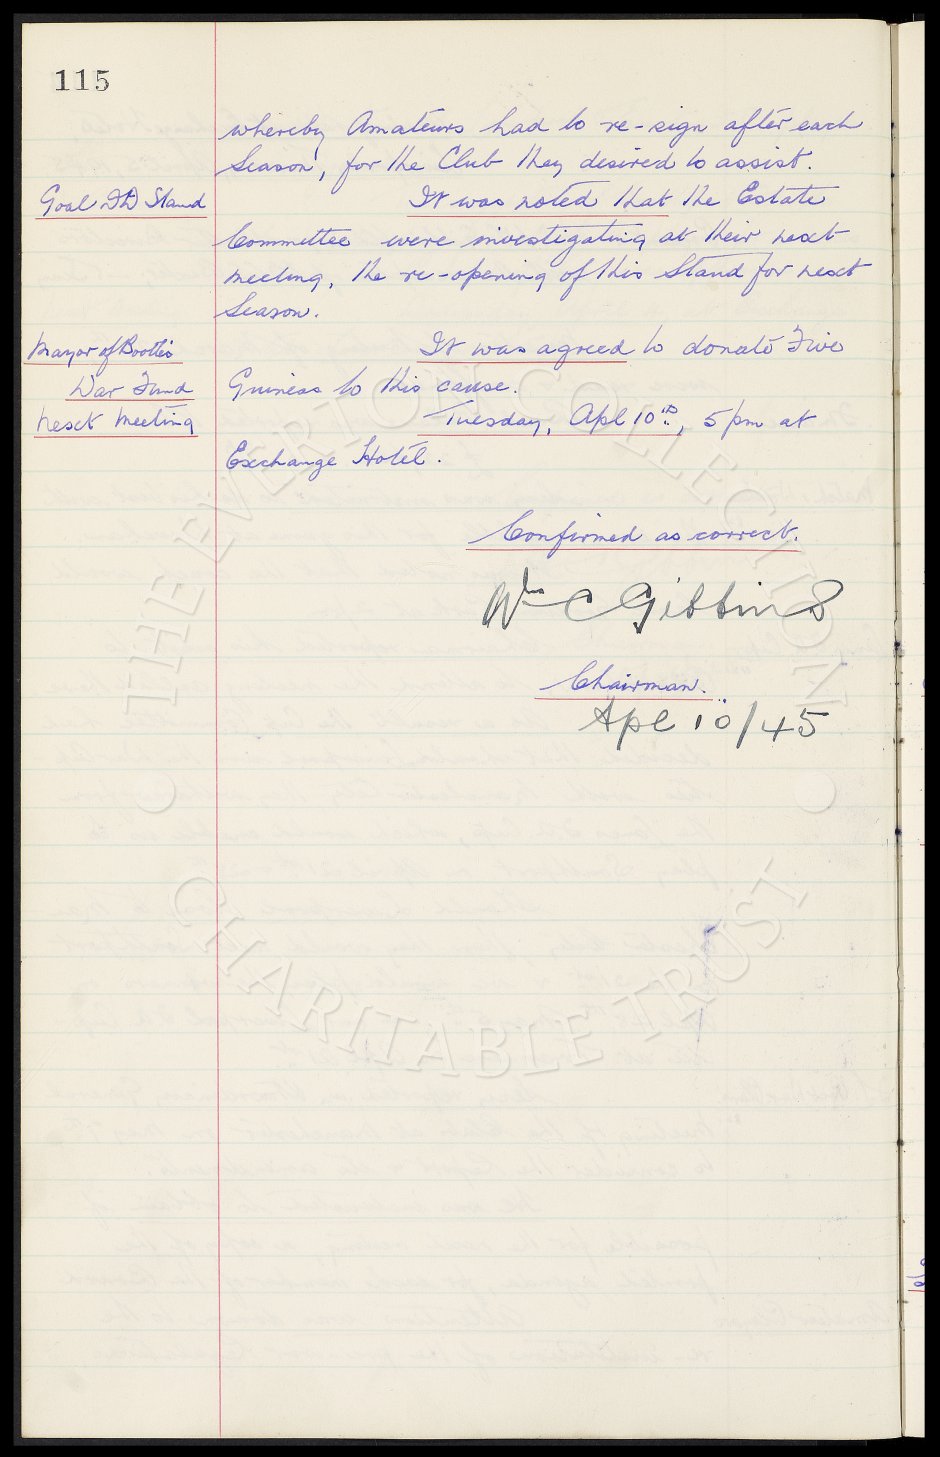 115
whereby Amateurs had to re-sign after each
Season, for the Club they desired to assist.
Goal Std Stand
It was noted that the Estate
Committee were investigating at their next
meeting, the re-opening of this Stand for next
Season.
Mayor of Bootle's
War Fund
It was agreed to donate Five
Guineas to this cause.
Next Meeting
Tuesday, Apl 10th, 5pm at
Exchange Hotel.
Confirmed as correct.
Wm C Gibbins
Chairman.
Apl 10/45
THE EVERTON COLLECTION
CHARITABLE TRUST